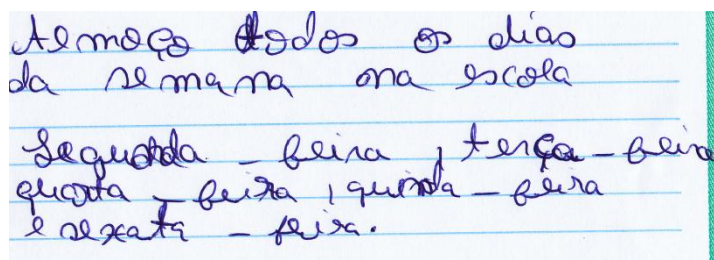 Almoço todos os dias
da semana na escola
Segunda - feira, terça - feira
quarta - feira, quinda - feira
e sexata - feira.